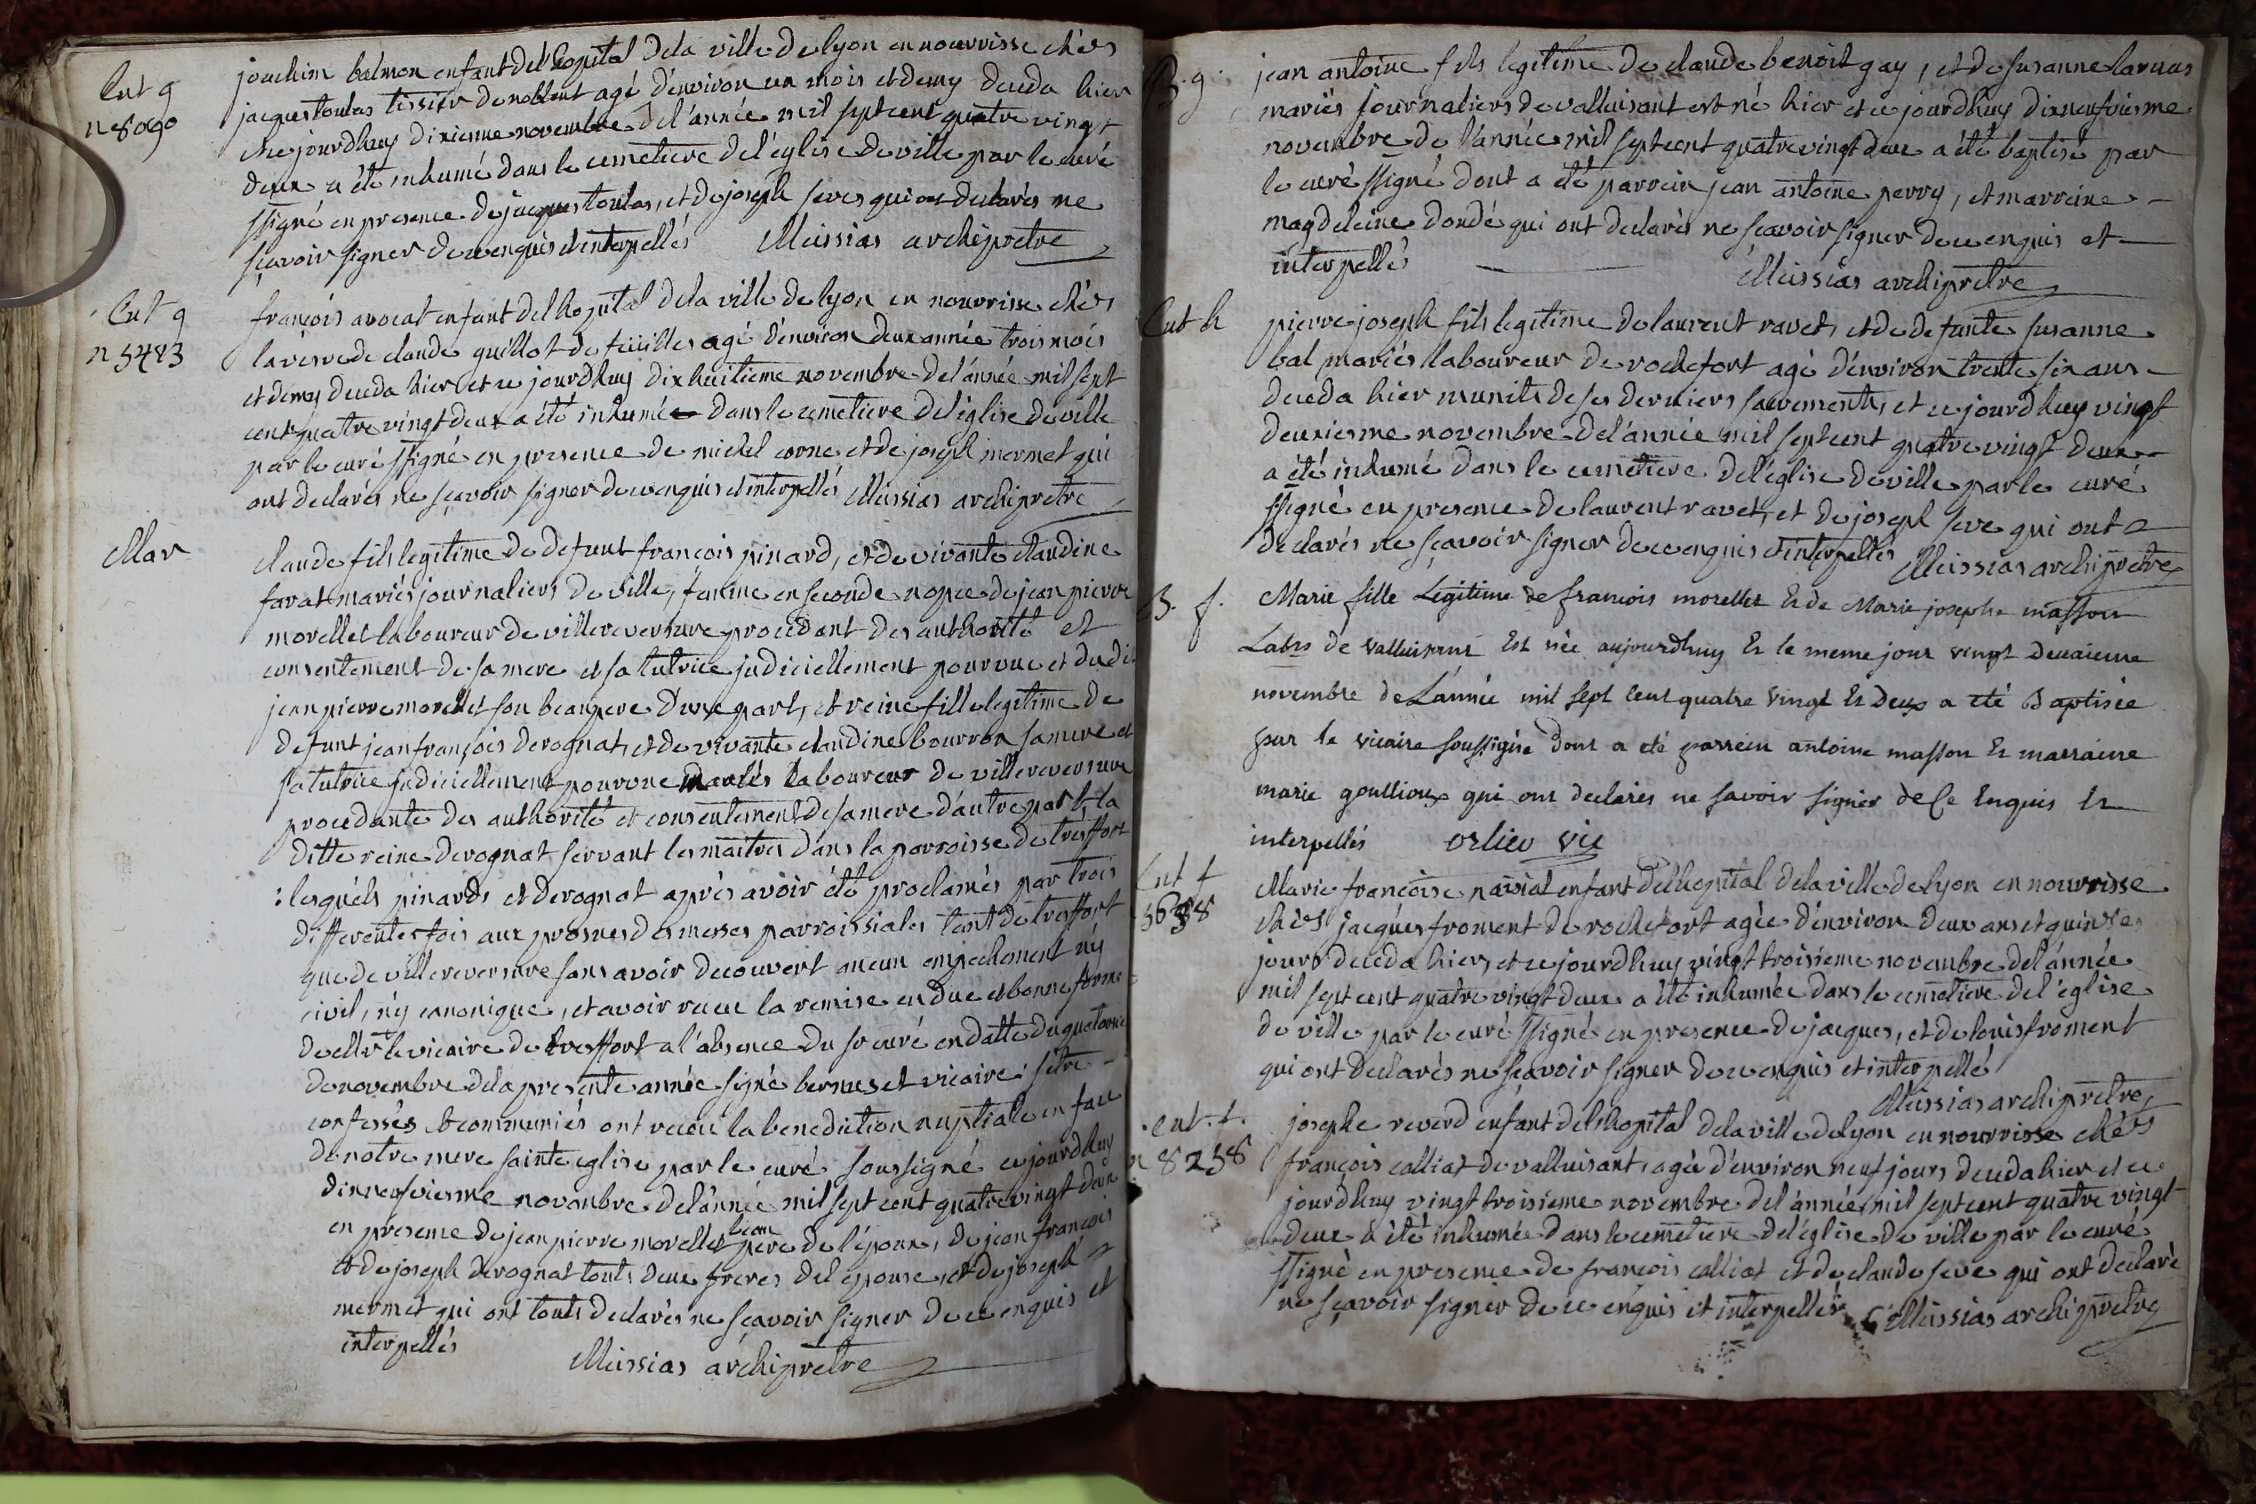 Ent g
n 8090
joachim balmon enfant del'hopital dela ville de lyon en nourrisse chés
jacques toulas tissier de noblent agé d'environ un mois et demy deceda hier
et ce jourdhuy dixieme novembre del'année mil sept cent quatre vingt
deux a été inhumé dans le cemetiere del'église de ville par le curé
ssigné en presence de jacques toulas, et de joseph seves qui ont declarés ne
sçavoir signer de ce enquis et interpellés Messias archipretre
Ent g
n 5483
françois avocat enfant del'hopital dela ville de lyon en nourrisse chés
la vesve de claude guillot de feüilles agé d'environ deux année trois mois
et demy deceda hier et ce jourdhuy dix huitieme novembre del'année mil sept
cent quatre vingt deux a été inhumé dans le cemetiere del'église de ville
par le curé ssigné en presence de michel corne et de joseph mermet qui
ont declarés ne sçavoir signer de ce enquis et interpellés Messias archipretre
Mar
claude fils legitime de defunt françois pinard, et de vivante claudine
favat mariés journaliers de ville, femme en seconde nopce de jean pierre
morellet laboureur de villereversure procedant des authorité et
consentement de sa mere et sa tutrice judiciellement pourvue et dudit
jean pierre morellet son beaupere d'une part, et reine fille legitime de
defunt jean françois derognat, et de vivante claudine bourron sa mere et
sa tutrice judiciellement pourvue mariés laboureur de villereversure
procedante des authorité et consentement de sa mere d'autre part la
ditte reine derognat servant les maitres dans la parroisse de tresffort
: lesquels pinard et derognat aprés avoir été proclamés par trois
differentes fois aux prosnes des messes parroissiales tant de tresffort
que de villereversure sans avoir decouvert aucun empechement ny
civil, ny canonique, et avoir receu la remise en due et bonne forme
de mr le vicaire de tresffort a l'absence du sr curé en datte du quatorze
de novembre dela presente année signé bernuset vicaire: s'etre
confessés et communiés ont receu la benediction nuptiale en face
de notre mere sainte eglise par le curé soussigné ce jourdhuy
dixneufviesme novembre del'année mil sept cent quatre vingt deux
en presence de jean pierre morellet beau pere de l'époux, de jean françois
et de joseph derognat touts deux freres del'epouse, et de joseph
mermet qui ont touts declarés ne sçavoir signer de ce enquis et
interpellés Messias archipretre
B. g.
jean antoine fils legitime de claude benoit gay, et de susanne
mariés journaliers de valluisant est né hier et ce jourdhuy dixneufviesme
novembre de l'année mil sept cent quatre vingt deux a été baptisé par
le curé ssigné dont a été parrein jean antoine perry, et marreine
magdeleine dondé qui ont declarés ne sçavoir signer de ce enquis et
interpellés Messias archipretre
Ent h
pierre joseph fils legitime de laurent ravet, et de defunte susanne
bal mariés laboureur de rochefort agé d'environ trente six ans
deceda hier munit de ses derniers sacrements, et ce jourdhuy vingt
deuxiesme novembre del'année mil sept cent quatre vingt deux
a été inhumé dans le cemetiere del'église de ville par le curé
ssigné en presence de laurent ravet, et de joseph seve qui ont
declarés ne sçavoir signer de ce enquis et interpellés Messias archipretre
B. f.
Marie fille Légitime de françois morellet Et de Marie josephe masson
Labrs de Valluisant Est née aujourdhuy Et le meme jour vingt deuxieme
novembre de L'année mil sept Cent quatre Vingt Et deux a été Baptisée
par le vicaire soussigné dont a été parrein antoine masson Et marraine
marie goullioux qui ont declarés ne savoir signer de Ce Enquis Et
interpellés orlieu vic
Ent f
5638
Marie françoise enfant del'hopital dela ville de lyon en nourrisse
chés jacques froment de rochefort agée d'environ deux ans et quinse
jours deceda hier, et ce jourdhuy vingt troisieme novembre del'année
mil sept cent quatre vingt deux a été inhumée dans le cemetiere del'église
de ville par le curé ssigné en presence de jacques, et de louis froment
qui ont declarés ne sçavoir signer de ce enquis et interpellé
Messias archipretre
ent. f.
n 8258
josephe reverd enfant del'hopital dela ville de lyon en nourrisse chés
françois calliat de valluisant, agée d'environ neuf jours deceda hier et ce
jourdhuy vingt troisieme novembre del'année mil sept cent quatre vingt
deux a été inhumée dans le cemetiere del'église de ville par le curé
ssigné en presence de françois calliat et de claude seve qui ont declaré
ne sçavoir signer de ce enquis et interpellés Messias archipretre